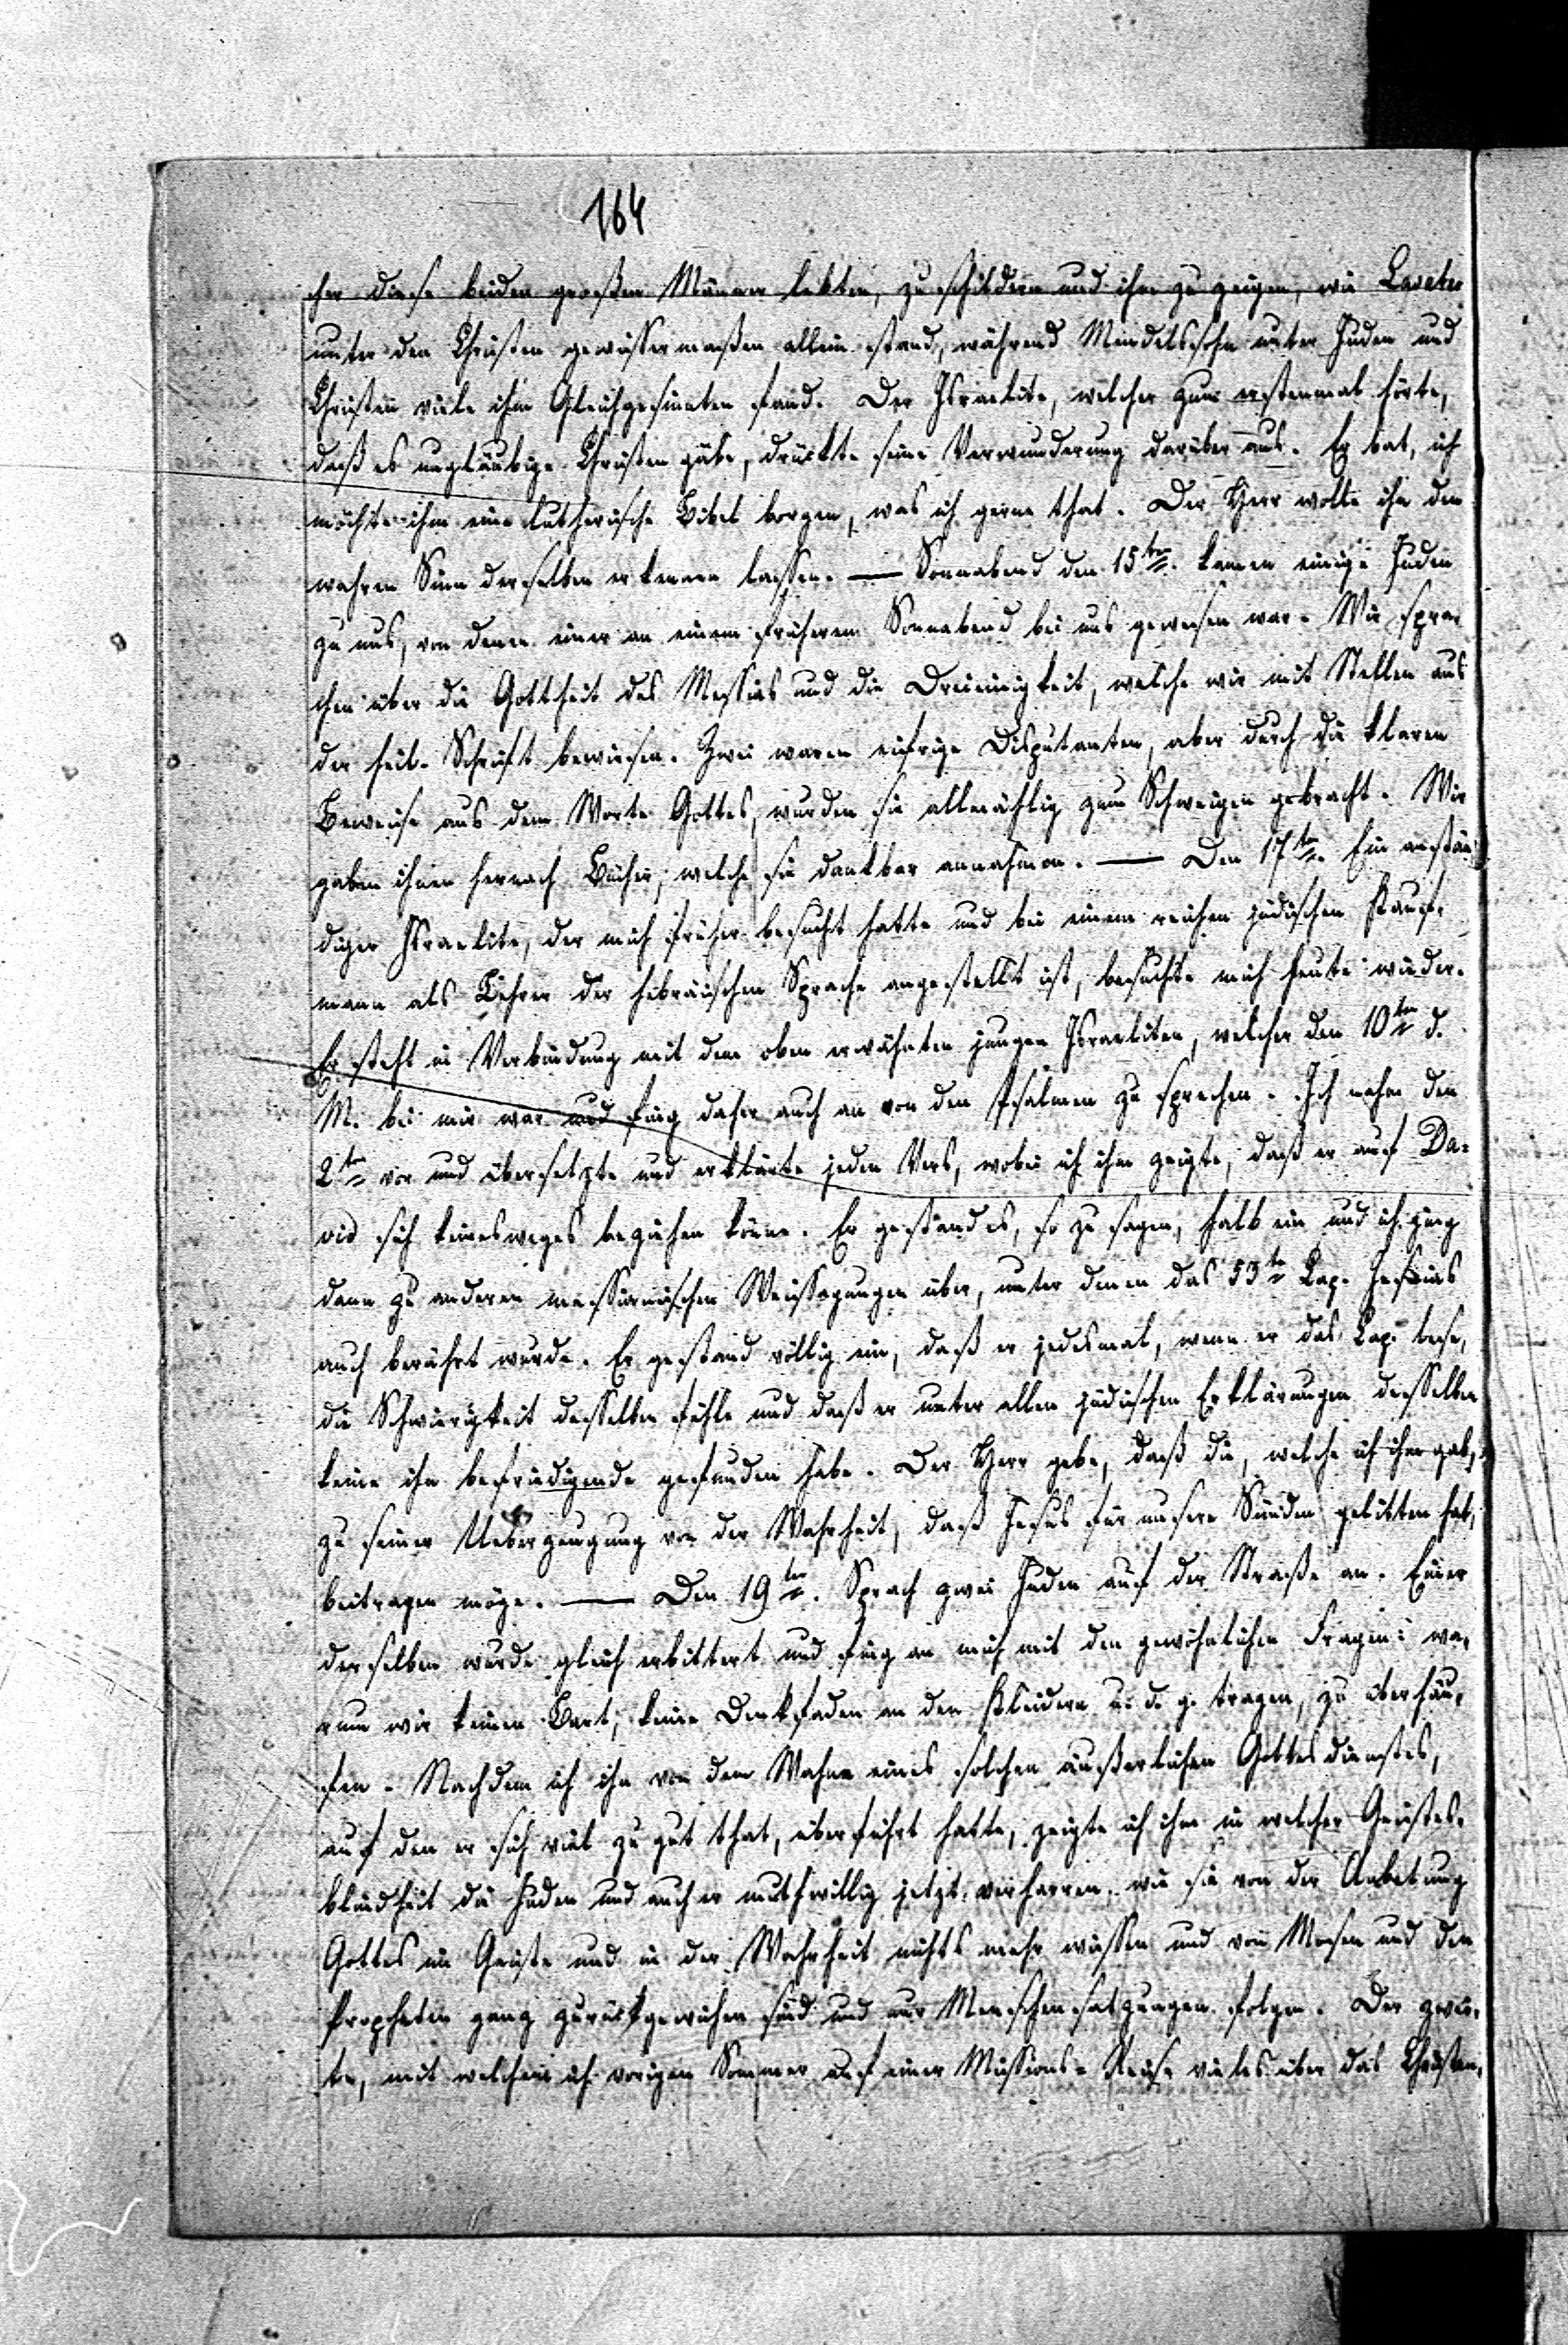 164
cher diese beiden großen Männer lebten, zu schildern und ihm zu zeigen, wie Lavater
unter den Christen gewissermaßen allein stand, während Mendelssohn unter Juden und
Christen viele ihm Gleichgesinnten fand. Der Israelite, welcher zum erstenmal hörte,
daß es ungläubige Christen gäbe, drückte seine Verwunderung darüber aus. Er bat, ich
möchte ihm eine lutherische Bibel borgen, was ich gerne that. Der Herr wolle ihn den
wahren Sinn derselben erkennen lassen. — Sonnabend den 15ten. kamen einige Juden
zu uns, von denen einer an einem früheren Sonnabend bei uns gewesen war. Wir spra-
chen über die Gottheit des Messias und die Dreieinigkeit, welche wir mit Stellen aus
der heil. Schrift bewiesen. Zwei waren eifrige Disputanten, aber durch die klaren
Beweise aus dem Worte Gottes, wurden sie allmählig zum Schweigen gebracht. Wir
gaben ihnen hernach Bücher, welche sie dankbar annahmen. — Den 17ten. Ein anstän-
diger Israelite, der mich früher besucht hatte und bei einem reichen jüdischen Kauf-
mann als Lehrer der hebräischen Sprache angestellt ist, besuchte mich heute wieder.
Er steht in Verbindung mit dem oben erwähnten jungen Israeliten, welcher den 10ten d.
M. bei mir war und fing daher auch an von den Psalmen zu sprechen. Ich nahm den
2ten vor und übersetzte und erklärte jeden Vers, wobei ich ihm zeigte, daß er auf Da-
vid sich keinesweges beziehen könne. Er gestand es, so zu sagen, halb ein und ich ging
dann zu anderen messianischen Weissagungen über, unter denen das 53te Cap. Jesaias
auch berührt wurde. Er gestand völlig ein, daß er jedesmal, wenn er das Cap. lese,
die Schwierigkeit desselben fühle und daß er unter allen jüdischen Erklärungen desselben
keine ihn befriedigende gefunden habe. Der Herr gebe, daß die, welche ich ihm gab,
zu seiner Ueberzeugung von der Wahrheit, daß Jesus für unsere Sünden gelitten hat,
beitragen möge. — Den 19ten. Sprach zwei Juden auf der Straße an. Einer
derselben wurde gleich erbittert und fing an mich mit den gewöhnlichen Fragen: wa-
rum wir keinen Bart, keine Denkfaden an den Kleidern u. d. g. tragen, zu überhäu-
fen. Nachdem ich ihn von dem Wahne eines solchen äußerlichen Gottesdienstes,
auf den er sich viel zu gut that, überführt hatte, zeigte ich ihm in welcher Geistes-
blindheit die Juden und auch er muthwillig jetzt verharren, wie sie von der Anbetung
Gottes im Geiste und in der Wahrheit nichts mehr wissen und von Mosen und den
Propheten ganz zurückgewichen sind und nur Menschensatzungen folgen. Der zwei-
te, mit welchem ich vorigen Sommer auf einer Missions-Reise vieles über das Christen-